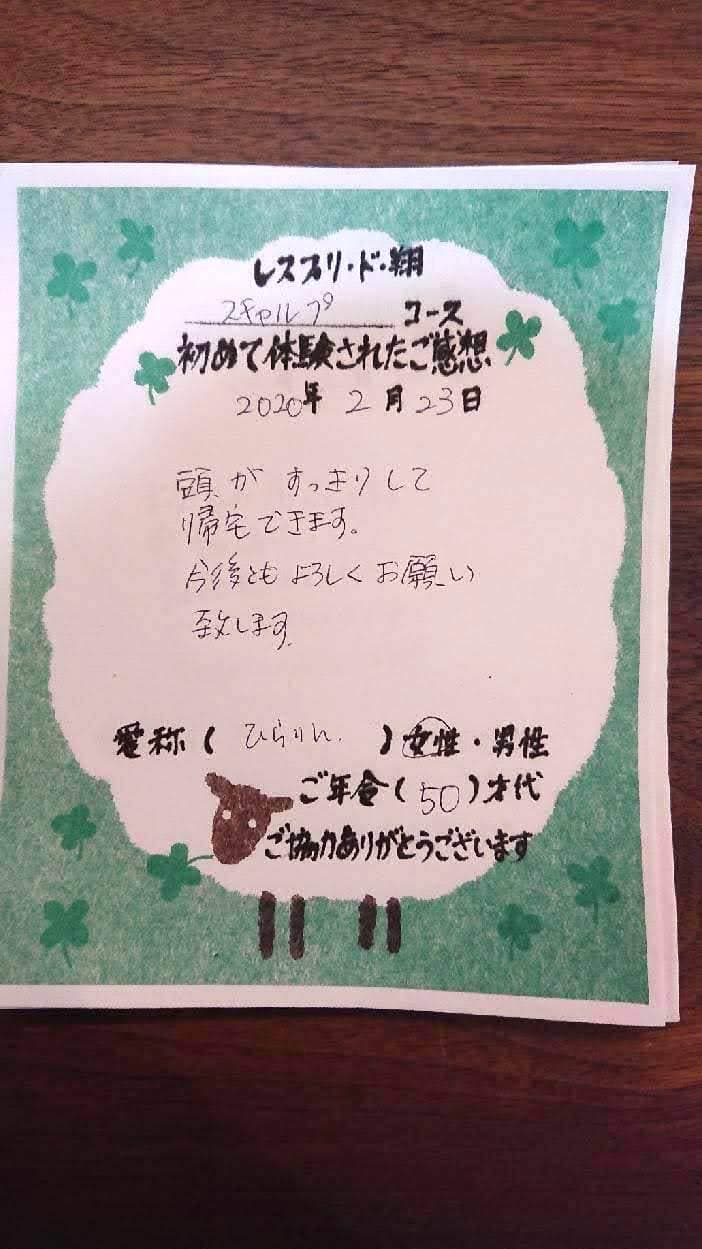 レスプリ・ド・翔
スキャルプ コース
初めて体験されたご感想
2020年 2月23日
頭がすっきりして
帰宅できます。
今後ともよろしくお願い
致します。
愛称( ひらりん )女性・男性
ご年令(50)才代
ご協力ありがとうございます